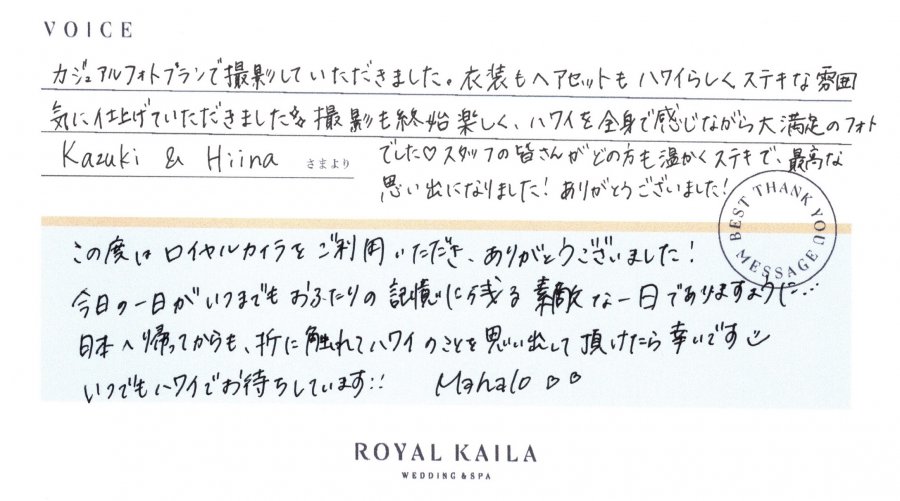 VOICE
カジュアルフォトプランで撮影していただきました。衣装もヘアセットもハワイらしくステキな雰囲
気に仕上げていただきました 撮影も終始楽しく、ハワイを全身で感じながら大満足のフォト
でした♡スタッフの皆さんがどの方も温かくステキで、最高な
思い出になりました！ありがとうございました！
Kazuki & Hiina さまより
BEST THANK YOU MESSAGE
この度はロイヤルカイラをご利用いただき、ありがとうございました！
今日の一日がいつまでもおふたりの記憶に残る素敵な一日でありますように…
日本へ帰ってからも、折に触れてハワイのことを思い出して頂けたら幸いです
いつでもハワイでお待ちしています!! Mahalo ♡♡
ROYAL KAILA
WEDDING & SPA